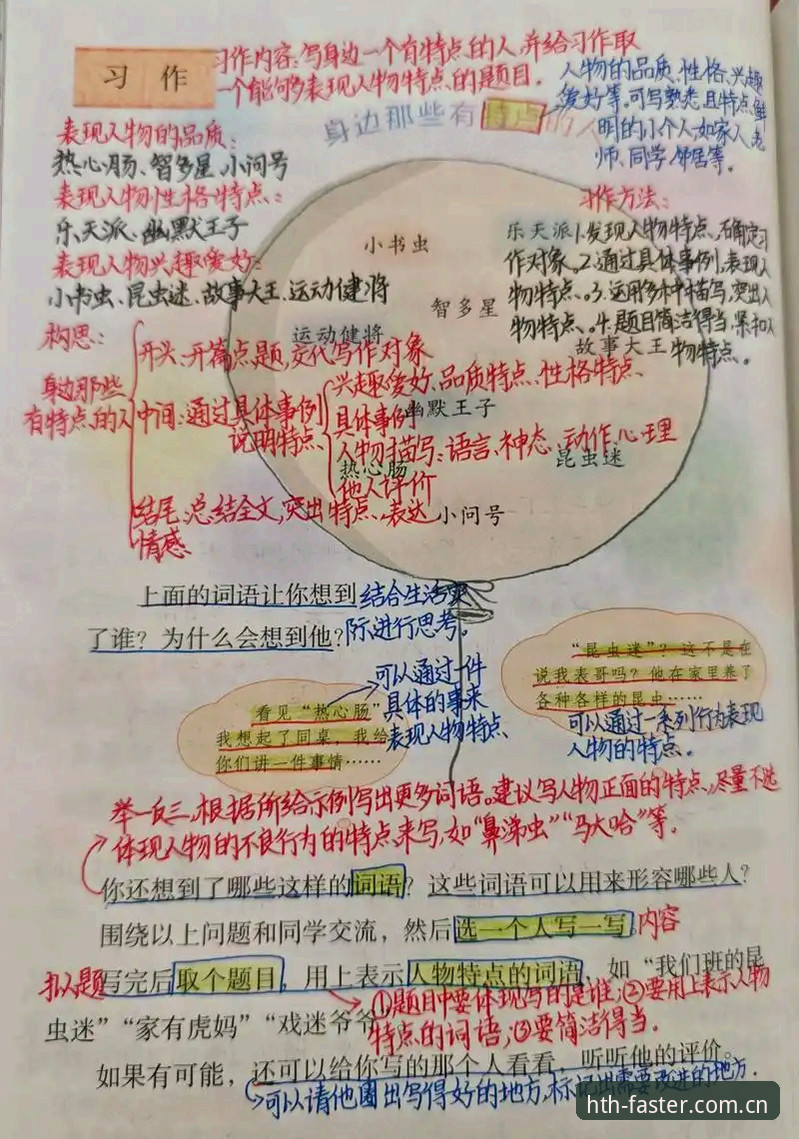 习作
习作内容:写身边一个有特点的人,并给习作取
一个能够表现人物特点的题目.
身边那些有特点的人
人物的品质、性格、兴趣
爱好等。可写熟悉且特点鲜
明的小个人,如家人、老
师、同学、邻居等。
表现人物的品质:
热心肠、智多星、小问号
表现人物性格特点:
乐天派、幽默王子
表现人物兴趣爱好:
小书虫、昆虫迷、故事大王、运动健将
小书虫
智多星
运动健将
乐天派
故事大王
幽默王子
热心肠
昆虫迷
小问号
习作方法:
1.发现人物特点,确定习
作对象。2.通过具体事例,表现人
物特点。3.运用多种描写,突出人
物特点。4.题目简洁得当,紧扣人
物特点。
构思:
身边那些
有特点的人
开头:开篇点题,交代写作对象
中间:通过具体事例
说明特点
兴趣爱好、品质特点、性格特点
具体事例
人物描写:语言、神态、动作、心理
他人评价
结尾:总结全文,突出特点、表达
情感
上面的词语让你想到
了谁?为什么会想到他?
结合生活实
际进行思考。
“昆虫迷”?这不是在
说我表哥吗?他在家里养了
各种各样的昆虫……
可以通过一系列行为表现
人物的特点。
看见“热心肠”
我想起了同桌,我给
你们讲一件事情……
可以通过一件
具体的事来
表现人物特点
举一反三,根据所给示例写出更多词语。建议写人物正面的特点,尽量不选
体现人物的不良行为的特点来写,如“鼻涕虫”“马大哈”等。
你还想到了哪些这样的词语?这些词语可以用来形容哪些人?
围绕以上问题和同学交流,然后选一个人写一写。内容
拟题
写完后取个题目,用上表示人物特点的词语,如“我们班的昆
虫迷”“家有虎妈”“戏迷爷爷
①题目中要体现写的是谁;②要用上表示人物
特点的词语;③要简洁得当.
如果有可能,还可以给你写的那个人看看,听听他的评价。
可以请他圈出写得好的地方,标记出需要改进的地方.
hth-faster.com.cn